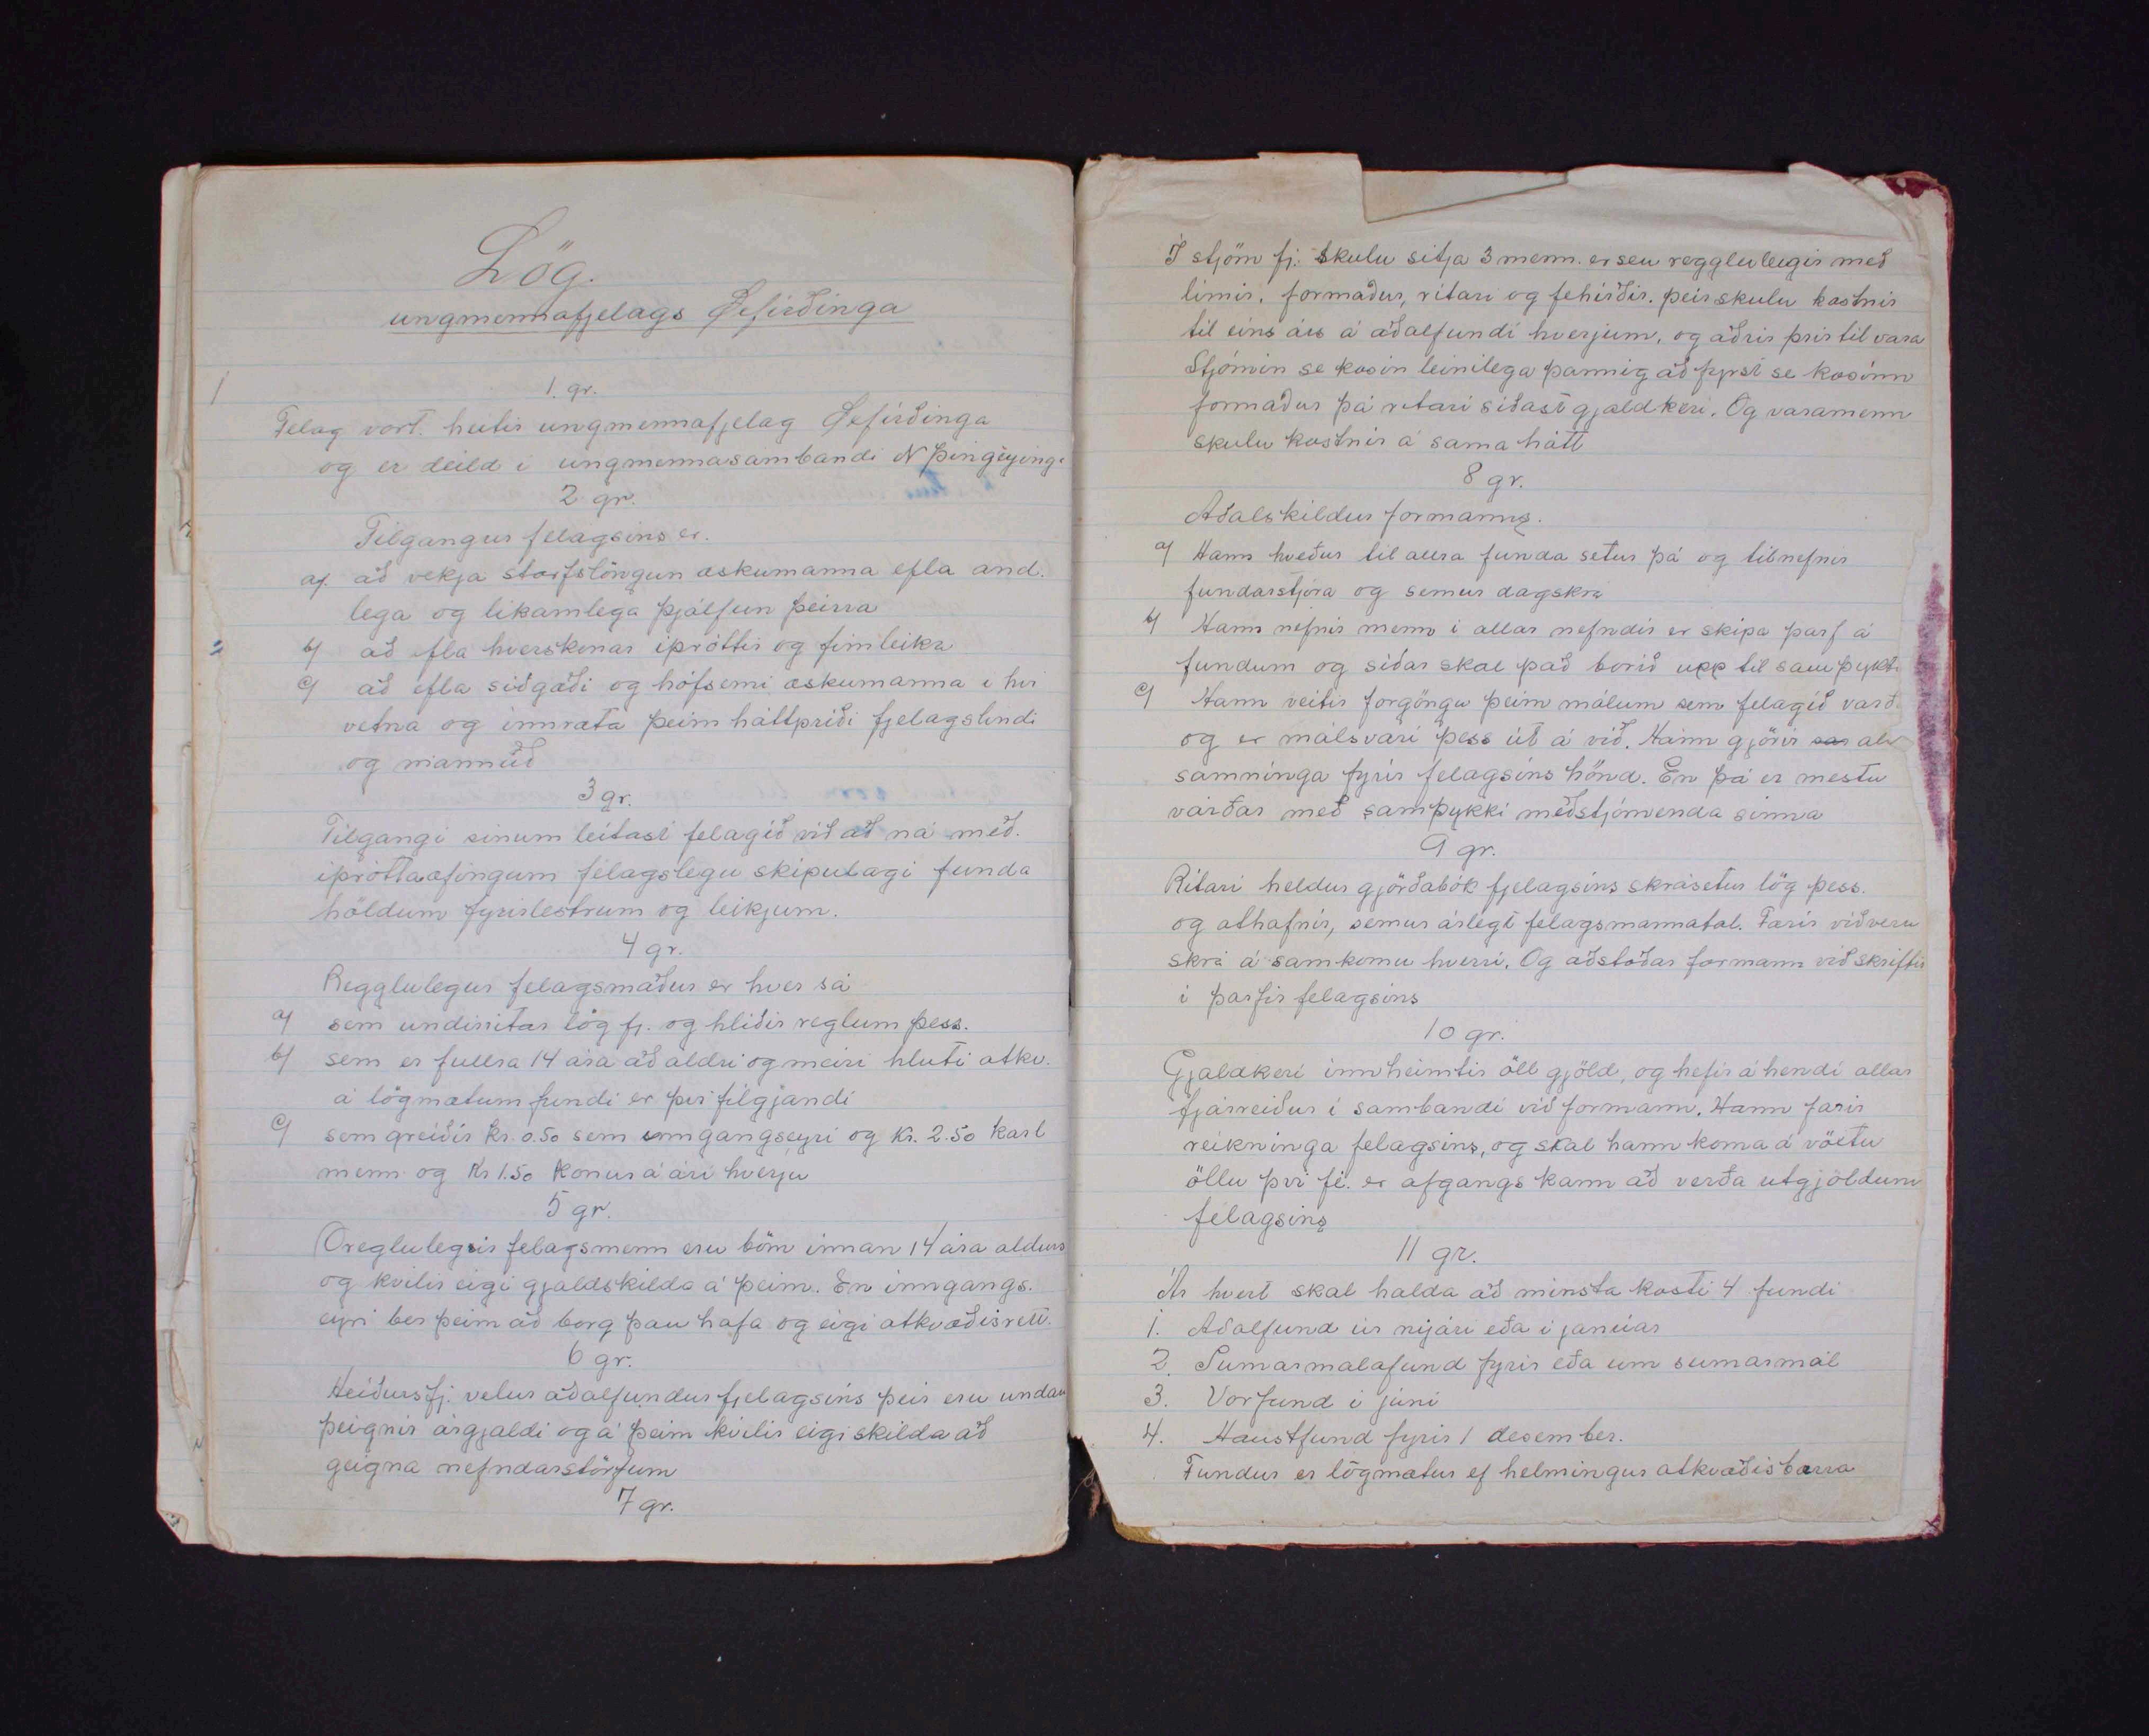 Lög.
ungmennafjelags Øxfirðinga
1
1. gr.
Felag vort. heitir ungmennafjelag Øxfirðinga
og er deild i ungmennasambandi N Þingeying.
2 gr.
Tilgangur felagsins er.
a) að vekja starfslöngun æskumanna efla and.
lega og likamlega þjálfun þeirra
b) að efla hverskonar iþróttir og fimleika
c) að efla siðgæði og hófsemi æskumanna i hvi
vetna og innræta þeim háttpriði fjelagslindi
og mannúð
3 gr.
Tilgangi sinum leitast felagið við að ná með.
iþróttaæfingum félagslegu skipulagi funda
höldum fyrirlestrum og leikjum.
4 gr.
Regglulegur felagsmaður er hver sá
a) sem undirritar lög fj. og hliðir reglum þess.
b) sem er fullra 14 ára að aldri og meiri hluti atkv.
á lögmætum fundi er þvi filgjandi
c) sem greiðir kr. 0.50 sem inngangseyri og kr. 2.50 karl
menn og Kr 1.50 konur á ári hverju
5 gr.
Óreglulegir felagsmenn eru börn innan 14 ára aldurs
og kvilir eigi gjaldskilda á þeim. En inngangs.
eyri ber þeim að borg þau hafa og eigi atkvæðisrett.
6 gr.
Heiðursfj. velur aðalfundur fjelagsins þeir eru undan
þeignir árgjaldi og á þeim kvilir eigi skilda að
geigna nefndarstörfum
7 gr.
I stjórn fj. skulu sitja 3 menn. er seu reggluleigir með
limir. formaður, ritari og fehirðir. þeir skulu kostnir
til eins árs á aðalfundi hverjum, og aðrir þrir til vara
Stjórnin se kosin leinilega þannig að fyrst se kosinn
formaður þá ritari siðast gjaldkeri. Og varamenn
skulu kostnir á sama hátt
8 gr.
Aðalskildur formanns.
a) Hann hveður til allra funda setur þá og tilnefnir
fundarstjóra og semur dagskrá
b) Hann nefnir menn i allar nefndir er skipa þarf á
fundum og siðar skal það borið upp til samþykt.
c) Hann veitir forgöngu þeim málum sem felagið varð.
og er málsvari þess út á við. Hann gjörir sar alr
samninga fyrir felagsins hönd. En þá er mestu
varðar með samþykki meðstjórnenda sinna
9 gr.
Ritari heldur gjörðabók fjelagsins skrásetur lög þess.
og athafnir, semur árlegt felagsmannatal. Farir viðveru
skrá á samkomu hverri. Og aðstoðar formann við skriftir
i þarfir felagsins
10 gr.
Gjaldkeri innheimtir öll gjöld, og hefir á hendi allar
fjárreiður i sambandi við formann. Hann farir
reikninga felagsins, og skal hann koma á vöxtu
öllu þvi fé. er afgangs kann að verða utgjöldum
félagsins
11 gr.
Ár hvert skal halda að minsta kosti 4 fundi
1. Aðalfund úr nýári eða i janúar
2. Sumarmalafund fyrir eða um sumarmál
3. Vorfund i júni
4. Haustfund fyrir 1 desember.
Fundur er lögmætur ef helmingur atkvæðisbærra